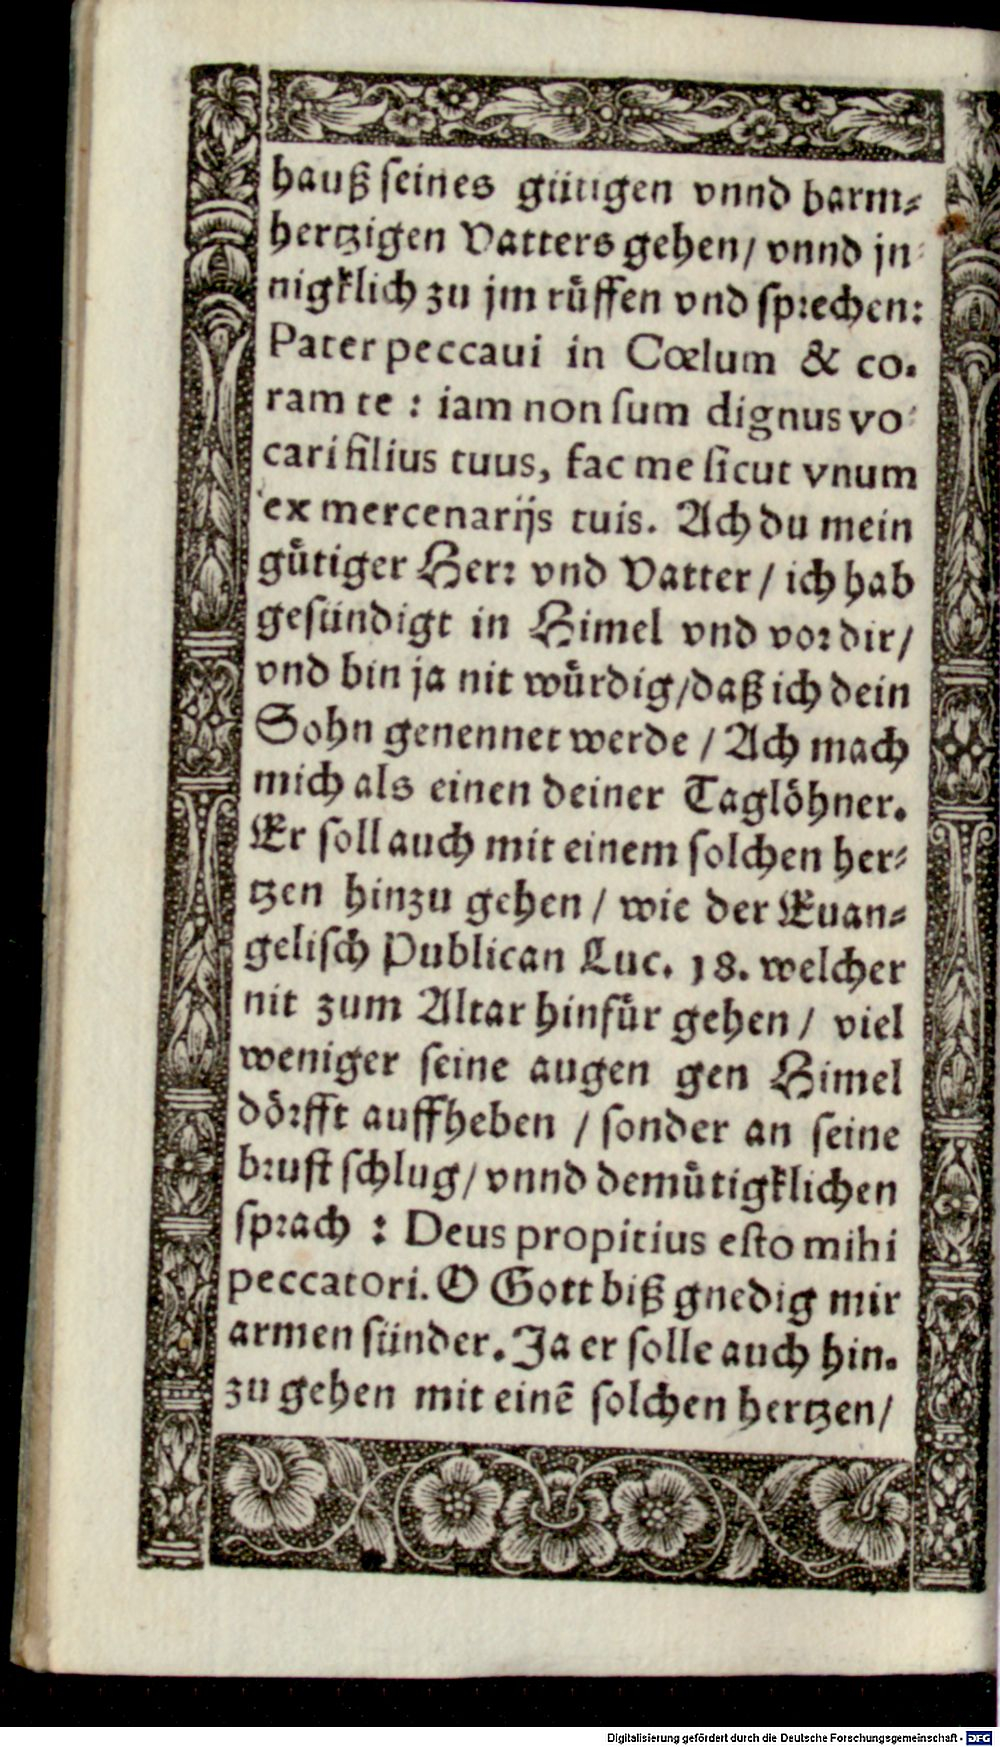 hauß seines gütigen vnnd barm⸗
hertzigen Vatters gehen/ vnnd jn⸗
nigklich zu jm růffen vnd sprechen:
Pater peccaui in Cœlum & co.
ram te : iam non sum dignus vo⸗
cari filius tuus, fac me sicut vnum
ex mercenarijs tuis. Ach du mein
gůtiger Herr vnd Vatter / ich hab
gesündigt in Himel vnd vor dir/
vnd bin ja nit wůrdig/daß ich dein
Sohn genennet werde / Ach mach
mich als einen deiner Taglöhner.
Er soll auch mit einem solchen her⸗
tzen hinzu gehen / wie der Euan⸗
gelisch Publican Luc. 18. welcher
nit zum Altar hinfůr gehen / viel
weniger seine augen gen Himel
dörfft auffheben / sonder an seine
brust schlug/ vnnd demůtigklichen
sprach : Deus propitius esto mihi
peccatori. O Gott biß gnedig mir
armen sünder. Ja er solle auch hin.
zu gehen mit einẽ solchen hertzen/
Digitalisierung gefördert durch die Deutsche Forschungsgemeinschaft - DFG